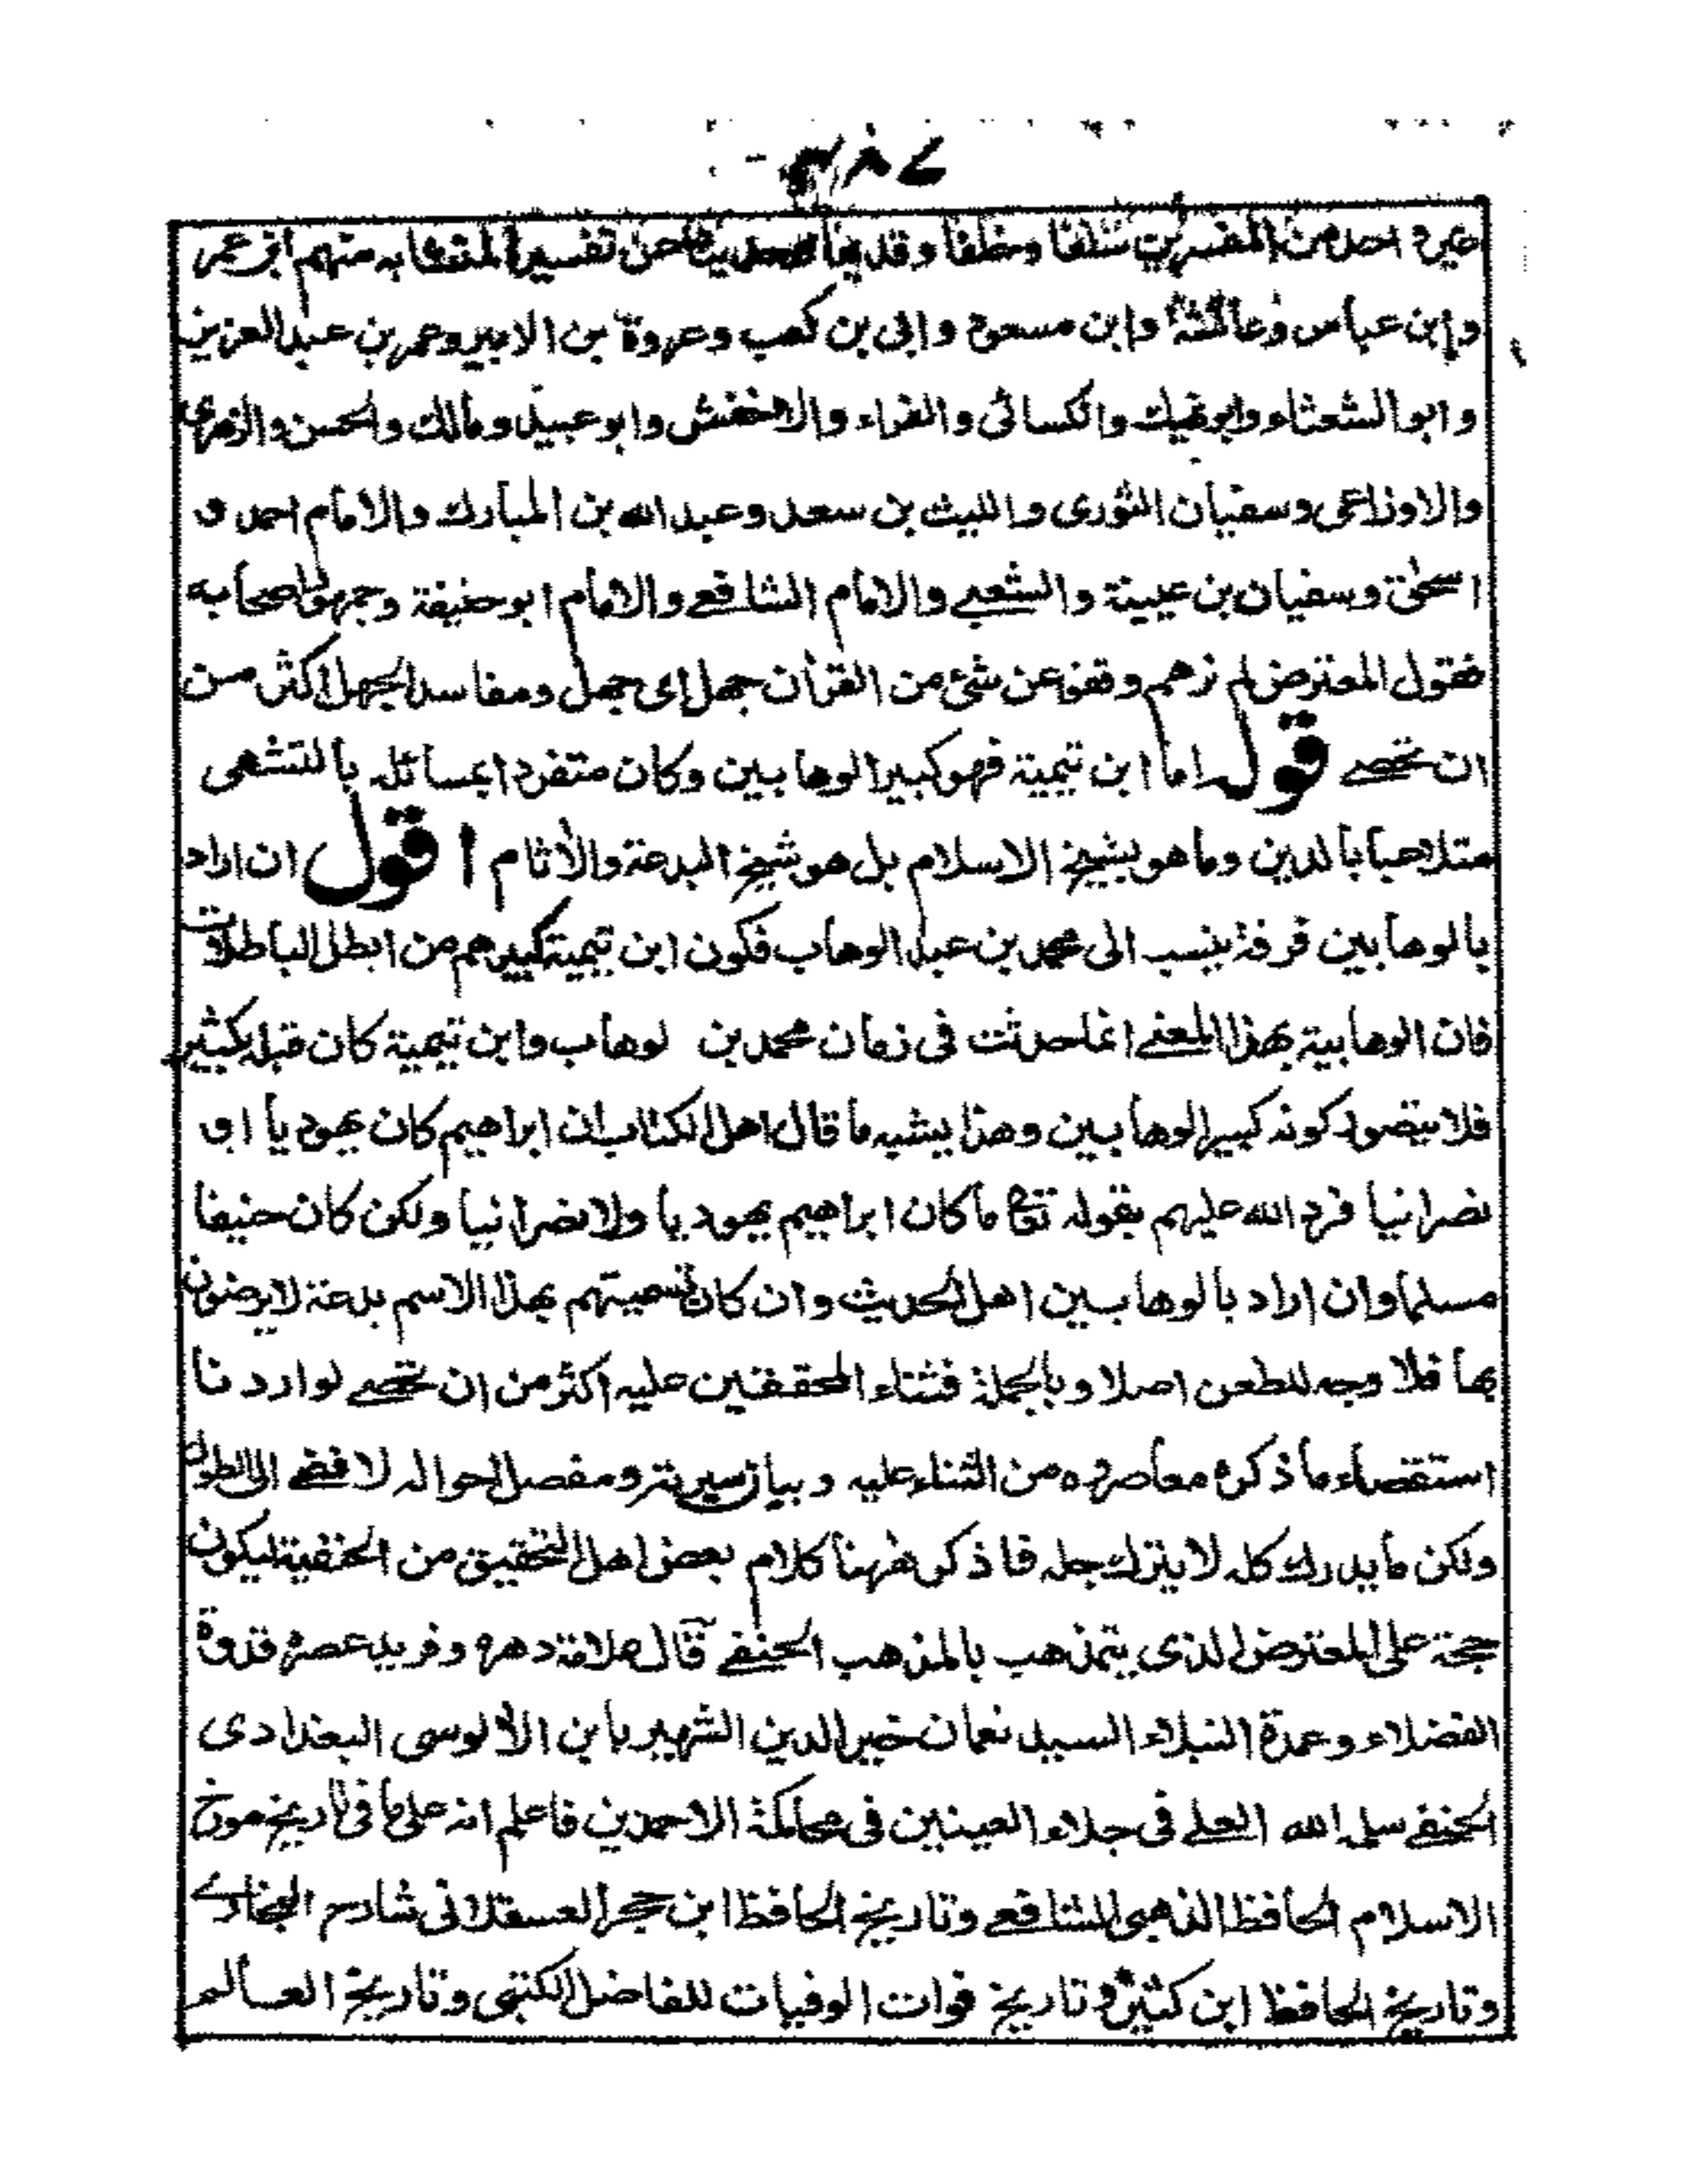 غيره احد من المفسرين سلفا وخلفا وقديما وحديثا عن تفسير المتشابه منهم ابن عمر
وابن عباس وعائشة وابن مسعود وابى بن كعب وعروة بن الزبير وعمر بن عبد العزيز
وابو الشعثاء وابو نهيك والكسائى والفراء والاخفش وابو عبيد ومالك والحسن والزهرى
والاوزاعى وسفيان الثورى والليث بن سعد وعبد الله بن المبارك والامام احمد و
اسحٰق وسفيان بن عيينة والشعبے والامام الشافعے والامام ابو حنيفة وجمهور اصحابه
فقول المعترض لم نرهم وقفوا عن شئ من القرأن جهل اى جهل ومفاسد الجهل اكثر من
ان تحصے قوله اما ابن تيمية فهو كبير الوهابين وكان متفردا بمسائله بالتشهى
متلاعبا بالدين وما هو بشيخ الاسلام بل هو شيخ البدعة والأثام اقول ان اراد
بالوهابين فرقة ينسب الى محمد بن عبد الوهاب فكون ابن تيمية كبيرهم من ابطل الباطلات
فان الوهابية بهذا المعنے انما حدثت فى زمان محمد بن لوهاب وابن تيمية كان قبله بكثير
فلا يتصور كونه كبير الوهابين وهذا يشبه ما قال اهل الكتاب ان ابراهيم كان يهوديا او
نصرانيا فرد الله عليهم بقوله تع ما كان ابراهيم يهوديا ولا نصرانيا ولكن كان حنيفا
مسلما وان اراد بالوهابين اهل الحديث وان كان تسميتهم بهذا الاسم بدعة لا يرضون
بها فلا وجه للطعن اصلا وبالجملة فثناء المحققين عليه اكثر من ان تحصے لو اردنا
استقصاء ما ذكره معاصروه من الثناء عليه وبيان سيرته ومفصل احواله لافضے الى الطول
ولكن ما يدرك كله لا يترك جله فاذكر ههنا كلام بعض اهل التحقيق من الحنفية ليكون
حجة على المعترض الذى يتمذهب بالمذهب الحنفے قال علامة دهره وفريد عصره قدوة
الفضلاء وعمدة النبلاء السيد نعمان خير الدين الشهير بابن الألوسى البغدادى
الحنفے سلمه الله العلے فى جلاء العينين فى محاكمة الاحمدين فاعلم انه على ما فى تاريخ مورخ
الاسلام الحافظ الذهبى الشافعے وتاريخ الحافظ ابن حجر العسقلانى شارح البخارے
وتاريخ الحافظ ابن كثير وتاريخ فوات الوفيات للفاضل الكتبى وتاريخ العالم